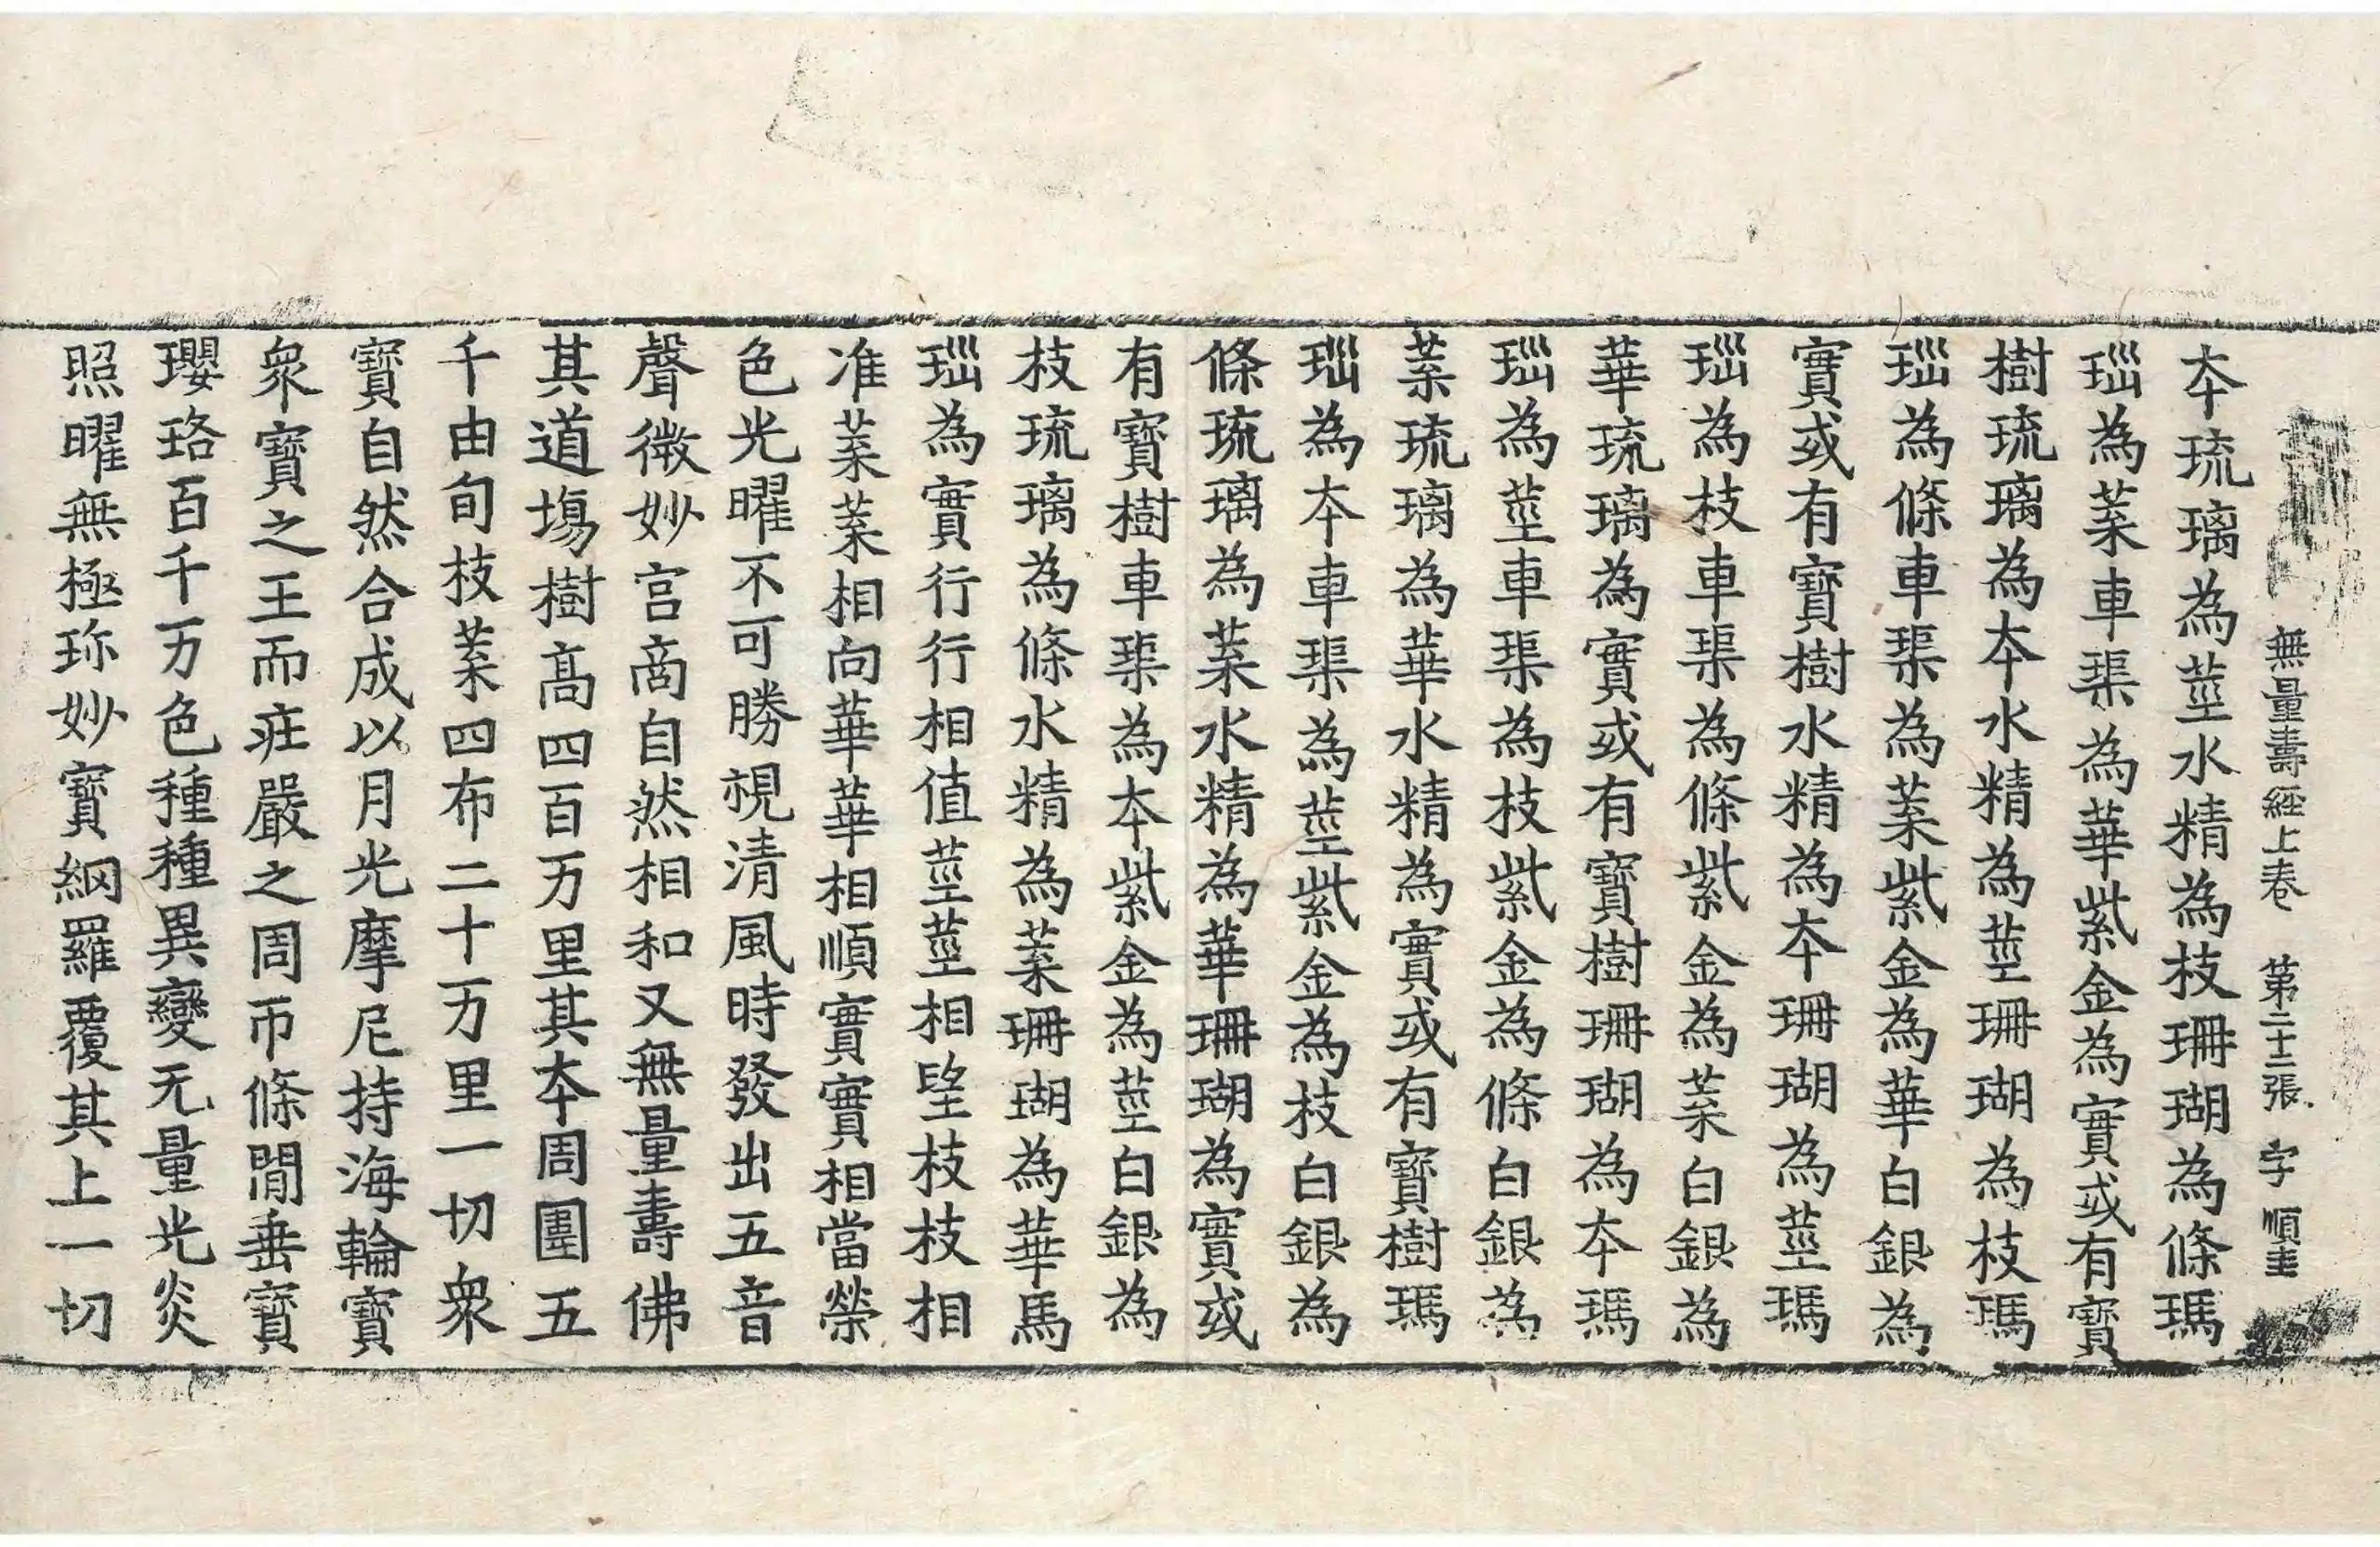 無量壽經上卷 第二十二張 字 順圭
夲琉璃為莖水精為枝珊瑚為條瑪
瑙為葉車𤦲為華紫金為實或有寶
樹琉璃為夲水精為莖珊瑚為枝瑪
瑙為條車𤦲為葉紫金為華白銀為
實或有寶樹水精為夲珊瑚為莖瑪
瑙為枝車𤦲為條紫金為葉白銀為
華琉璃為實或有寶樹珊瑚為夲瑪
瑙為莖車𤦲為枝紫金為條白銀為
葉琉璃為華水精為實或有寶樹瑪
瑙為夲車𤦲為莖紫金為枝白銀為
條琉璃為葉水精為華珊瑚為實或
有寶樹車𤦲為夲紫金為莖白銀為
枝琉璃為條水精為葉珊瑚為華馬
瑙為實行行相值莖莖相望枝枝相
准葉葉相向華華相順實實相當榮
色光曜不可勝視清風時發出五音
聲微妙宮商自然相和又無量壽佛
其道場樹高四百万里其夲周圍五
千由旬枝葉四布二十万里一切衆
寶自然合成以月光摩尼持海輪寶
衆寶之王而㽵嚴之周帀條閒垂寶
瓔珞百千万色種種異變无量光炎
照曜無極珎妙寶網羅覆其上一切